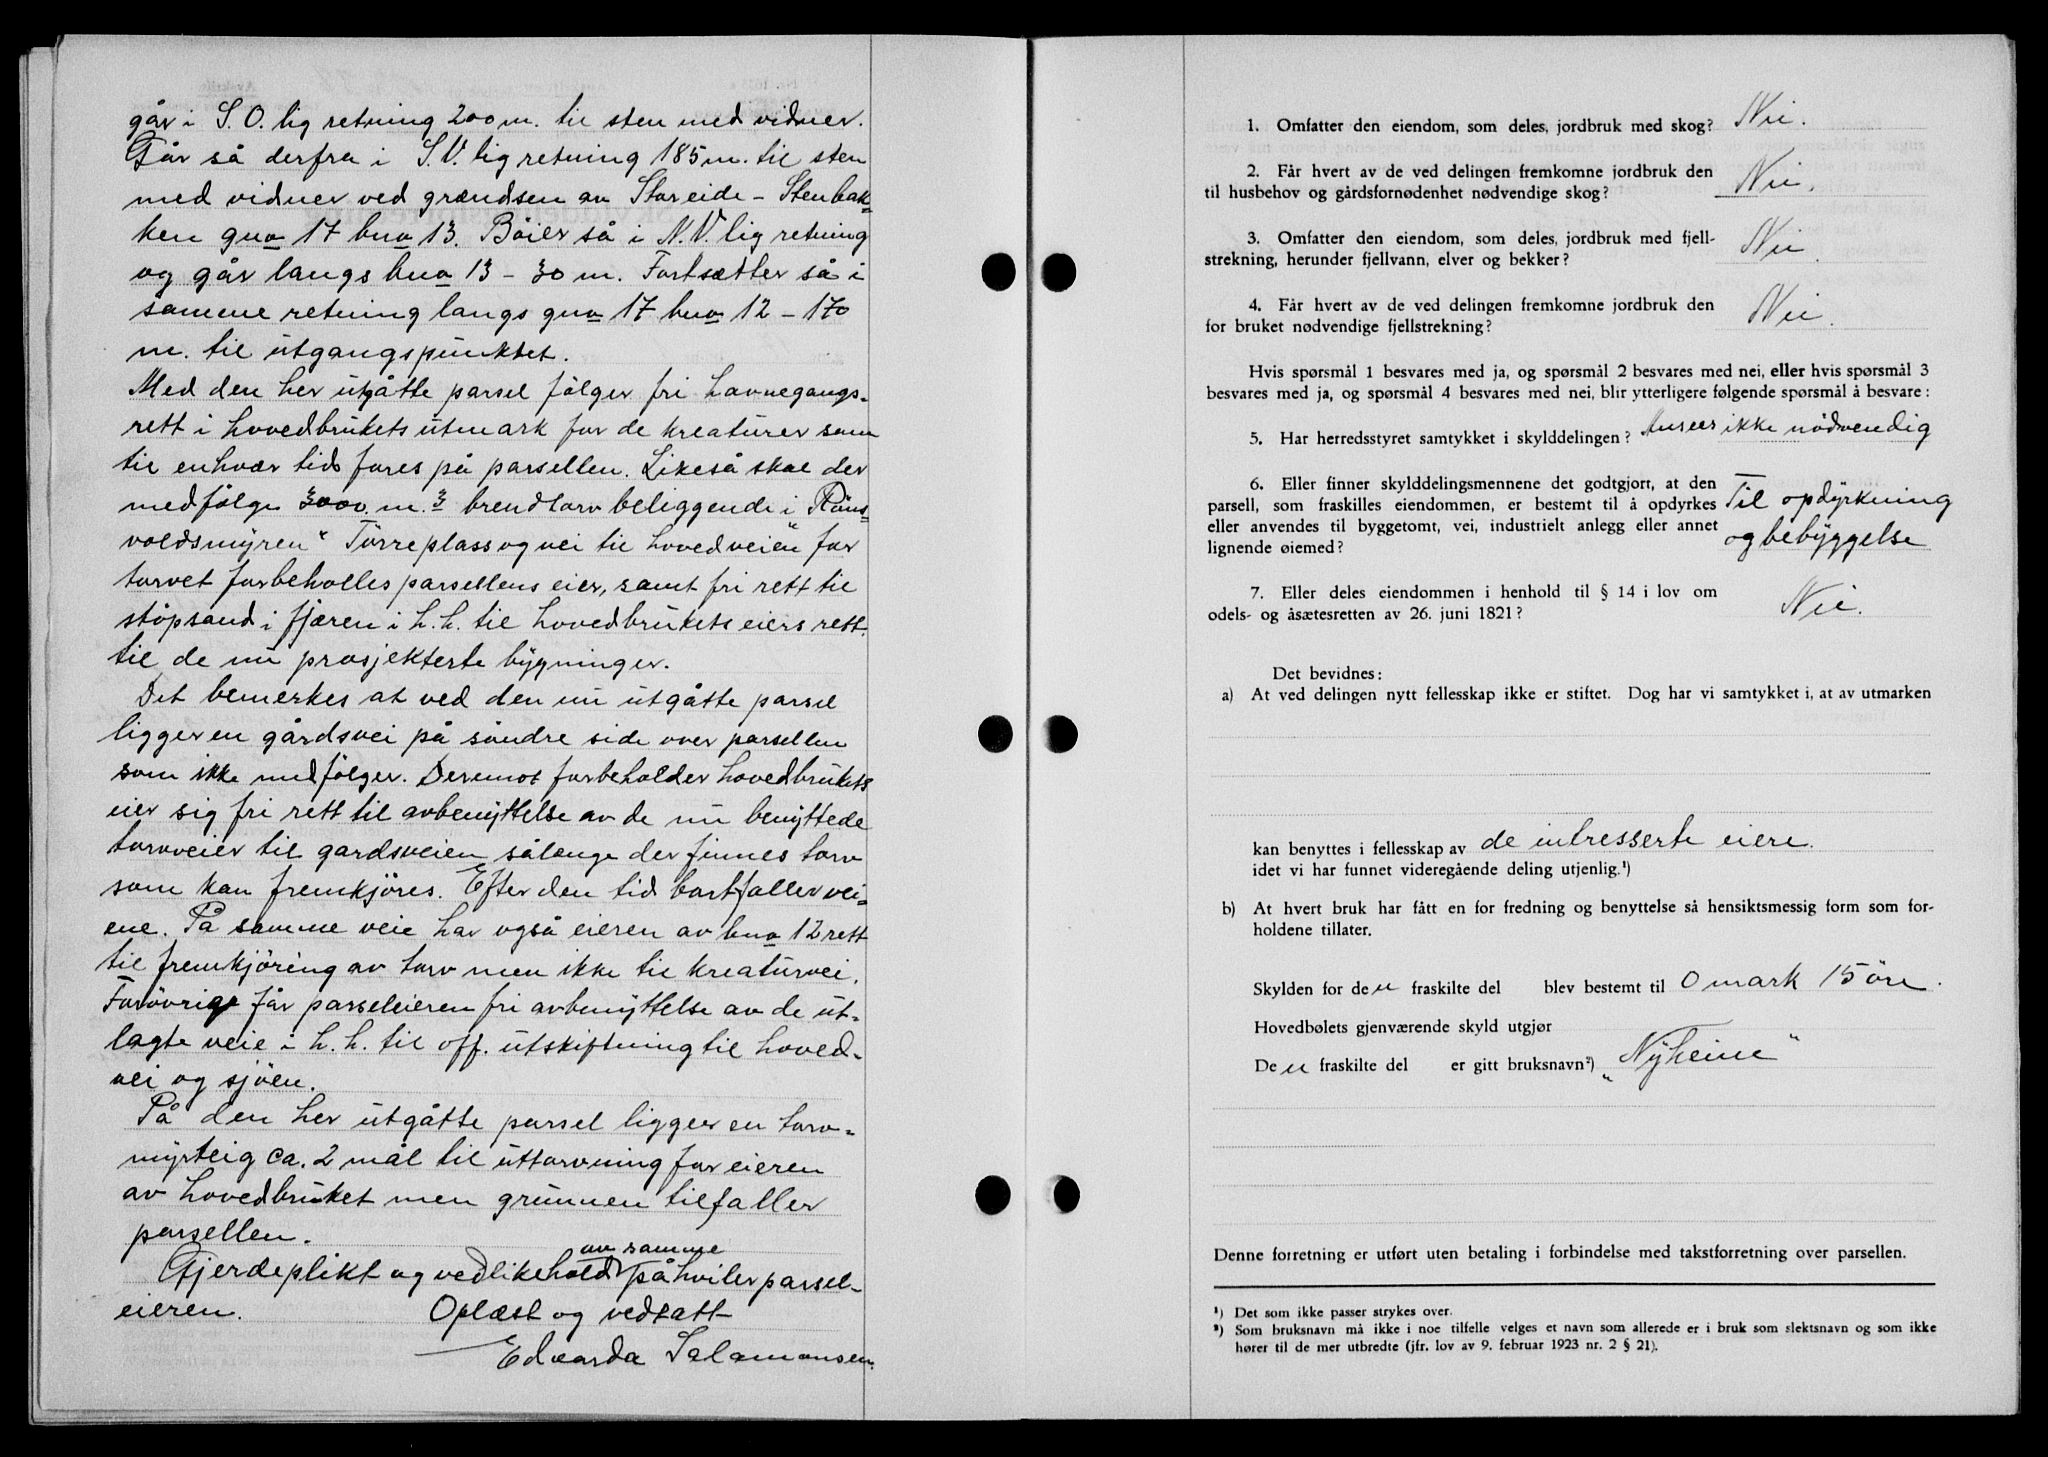 går i S.O. lig retning 200 m. til sten med vidner.
Går så derfra i S.V. lig retning 185 m. til sten
med vidner ved grændsen av Storeide - Stenbak-
ken gno 17 bno 13. Böier så i N.V. lig retning
og går langs bno 13 - 30 m. Fortsætter så i
samme retning langs gno 17 bno 12 - 170
m. til utgangspunktet.
Med den her utgåtte parsel følger fri havnegangs-
rett i hovedbrukets utmark for de kreaturer som
til enhvær tid fores på parsellen. Likeså skal der
medfölge 3000 m.3 brendtorv beliggende i
voldsmyren" Törreplass og vei til hovedveien for
torvet forbeholles parsellens eier, samt fri rett til
stöpsand i fjæren i h.h. til hovedbrukets eiers rett
til de nu prosjekterte bygninger.
Det bemerkes at ved den nu utgåtte parsel
ligger en gårdsvei på söndre side over parsellen
som ikke medfölger. Deremot forbeholder hovedbrukets
eier sig fri rett til avbenyttelse av de nu benyttede
torvveier til gardsveien sålenge der finnes torv
som kan fremkjöres. Efter den tid bortfaller vei-
ene. På samme veie har også eieren av bno 12 rett
til fremkjöring av torv men ikke til kreaturvei.
Forövrig får parseleieren fri avbenyttelse av de ut-
lagte veie i h.h. til off. utskiftning til hoved-
vei og sjöen.
På den her utgåtte parsel ligger en torv-
myrteig ca. 2 mål til uttorvning for eieren
av hovedbruket men grunnen tilfaller
parsellen.
av samme
Gjerdeplikt og vedlikehold påhviler parsel-
eieren. Oplæst og vedtatt
Edvarda Salamonsen.
1. Omfatter den eiendom, som deles, jordbruk med skog? Nei.
2. Får hvert av de ved delingen fremkomne jordbruk den
til husbehov og gårdsfornødenhet nødvendige skog? Nei.
3. Omfatter den eiendom, som deles, jordbruk med fjell-
strekning, herunder fjellvann, elver og bekker? Nei.
4. Får hvert av de ved delingen fremkomne jordbruk den
for bruket nødvendige fjellstrekning? Nei.
Hvis spørsmål 1 besvares med ja, og spørsmål 2 besvares med nei, eller hvis spørsmål 3
besvares med ja, og spørsmål 4 besvares med nei, blir ytterligere følgende spørsmål å besvare:
5. Har herredsstyret samtykket i skylddelingen? Ansees ikke nödvendig
6. Eller finner skylddelingsmennene det godtgjort, at den
parsell, som fraskilles eiendommen, er bestemt til å opdyrkes Til opdyrkning
eller anvendes til byggetomt, vei, industrielt anlegg eller annet og bebyggelse
lignende øiemed?
7. Eller deles eiendommen i henhold til § 14 i lov om
odels- og åsætesretten av 26. juni 1821? Nei.
Det bevidnes:
a) At ved delingen nytt fellesskap ikke er stiftet. Dog har vi samtykket i, at av utmarken
kan benyttes i fellesskap av de intresserte eiere.
idet vi har funnet videregående deling utjenlig.¹)
b) At hvert bruk har fått en for fredning og benyttelse så hensiktsmessig form som for-
holdene tillater.
Skylden for den fraskilte del blev bestemt til 0 mark 15 öre.
Hovedbølets gjenværende skyld utgjør
Den fraskilte del er gitt bruksnavn²) „Nyheim"
Denne forretning er utført uten betaling i forbindelse med takstforretning over parsellen.
¹) Det som ikke passer strykes over.
²) Som bruksnavn må ikke i noe tilfelle velges et navn som allerede er i bruk som slektsnavn og som ikke
hører til de mer utbredte (jfr. lov av 9. februar 1923 nr. 2 § 21).